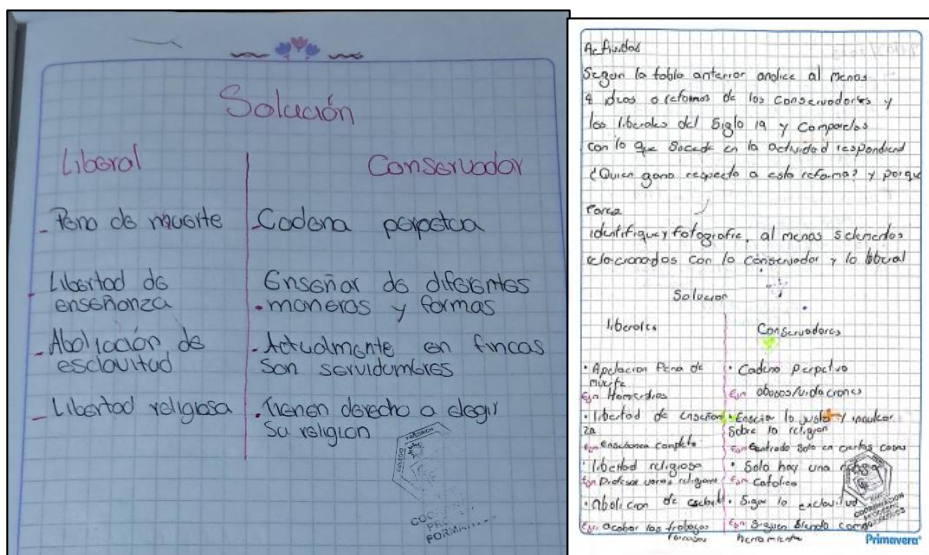 Solución
Liberal
Conservador
- Pena de muerte
Cadena perpetua
- Libertad de
enseñanza
Enseñar de diferentes
- maneras y formas
- Abolición de
esclavitud
- Actualmente en fincas
son servidumbres
- Libertad religiosa
- Tienen derecho a elegir
su religion
Actividad
Segun la tabla anterior analice al menos
4 ideas o reformas de los conservadores y
los liberales del Siglo 19 y Comparelos
con lo que Sucede en la actividad respondiend
¿Quien gano respecto a esta reforma? y porque
Tarea
identifique y fotografie, al menos 5 elementos
relacionados con lo conservador y lo liberal
Solucion
liberales
Conservadores
• Apelacion Pena de
muerte
Ejm Homicidios
• Cadena Perpetua
Ejm abusos/violaciones
• libertad de enseñan
za
Ejm enseñanza completa
• Enseñar lo justo y inculcar
Sobre la religion
Ejm Centrado Solo en ciertas cosas
• libertad religiosa
Ejm Profesar varias religiones
• Solo hay una
Ejm Catolica
• abolicion de
Ejm acabar los trabajos
forzados
• Sigue la esclavitud
Ejm Siguen Siendo como
herramienta
Primavera